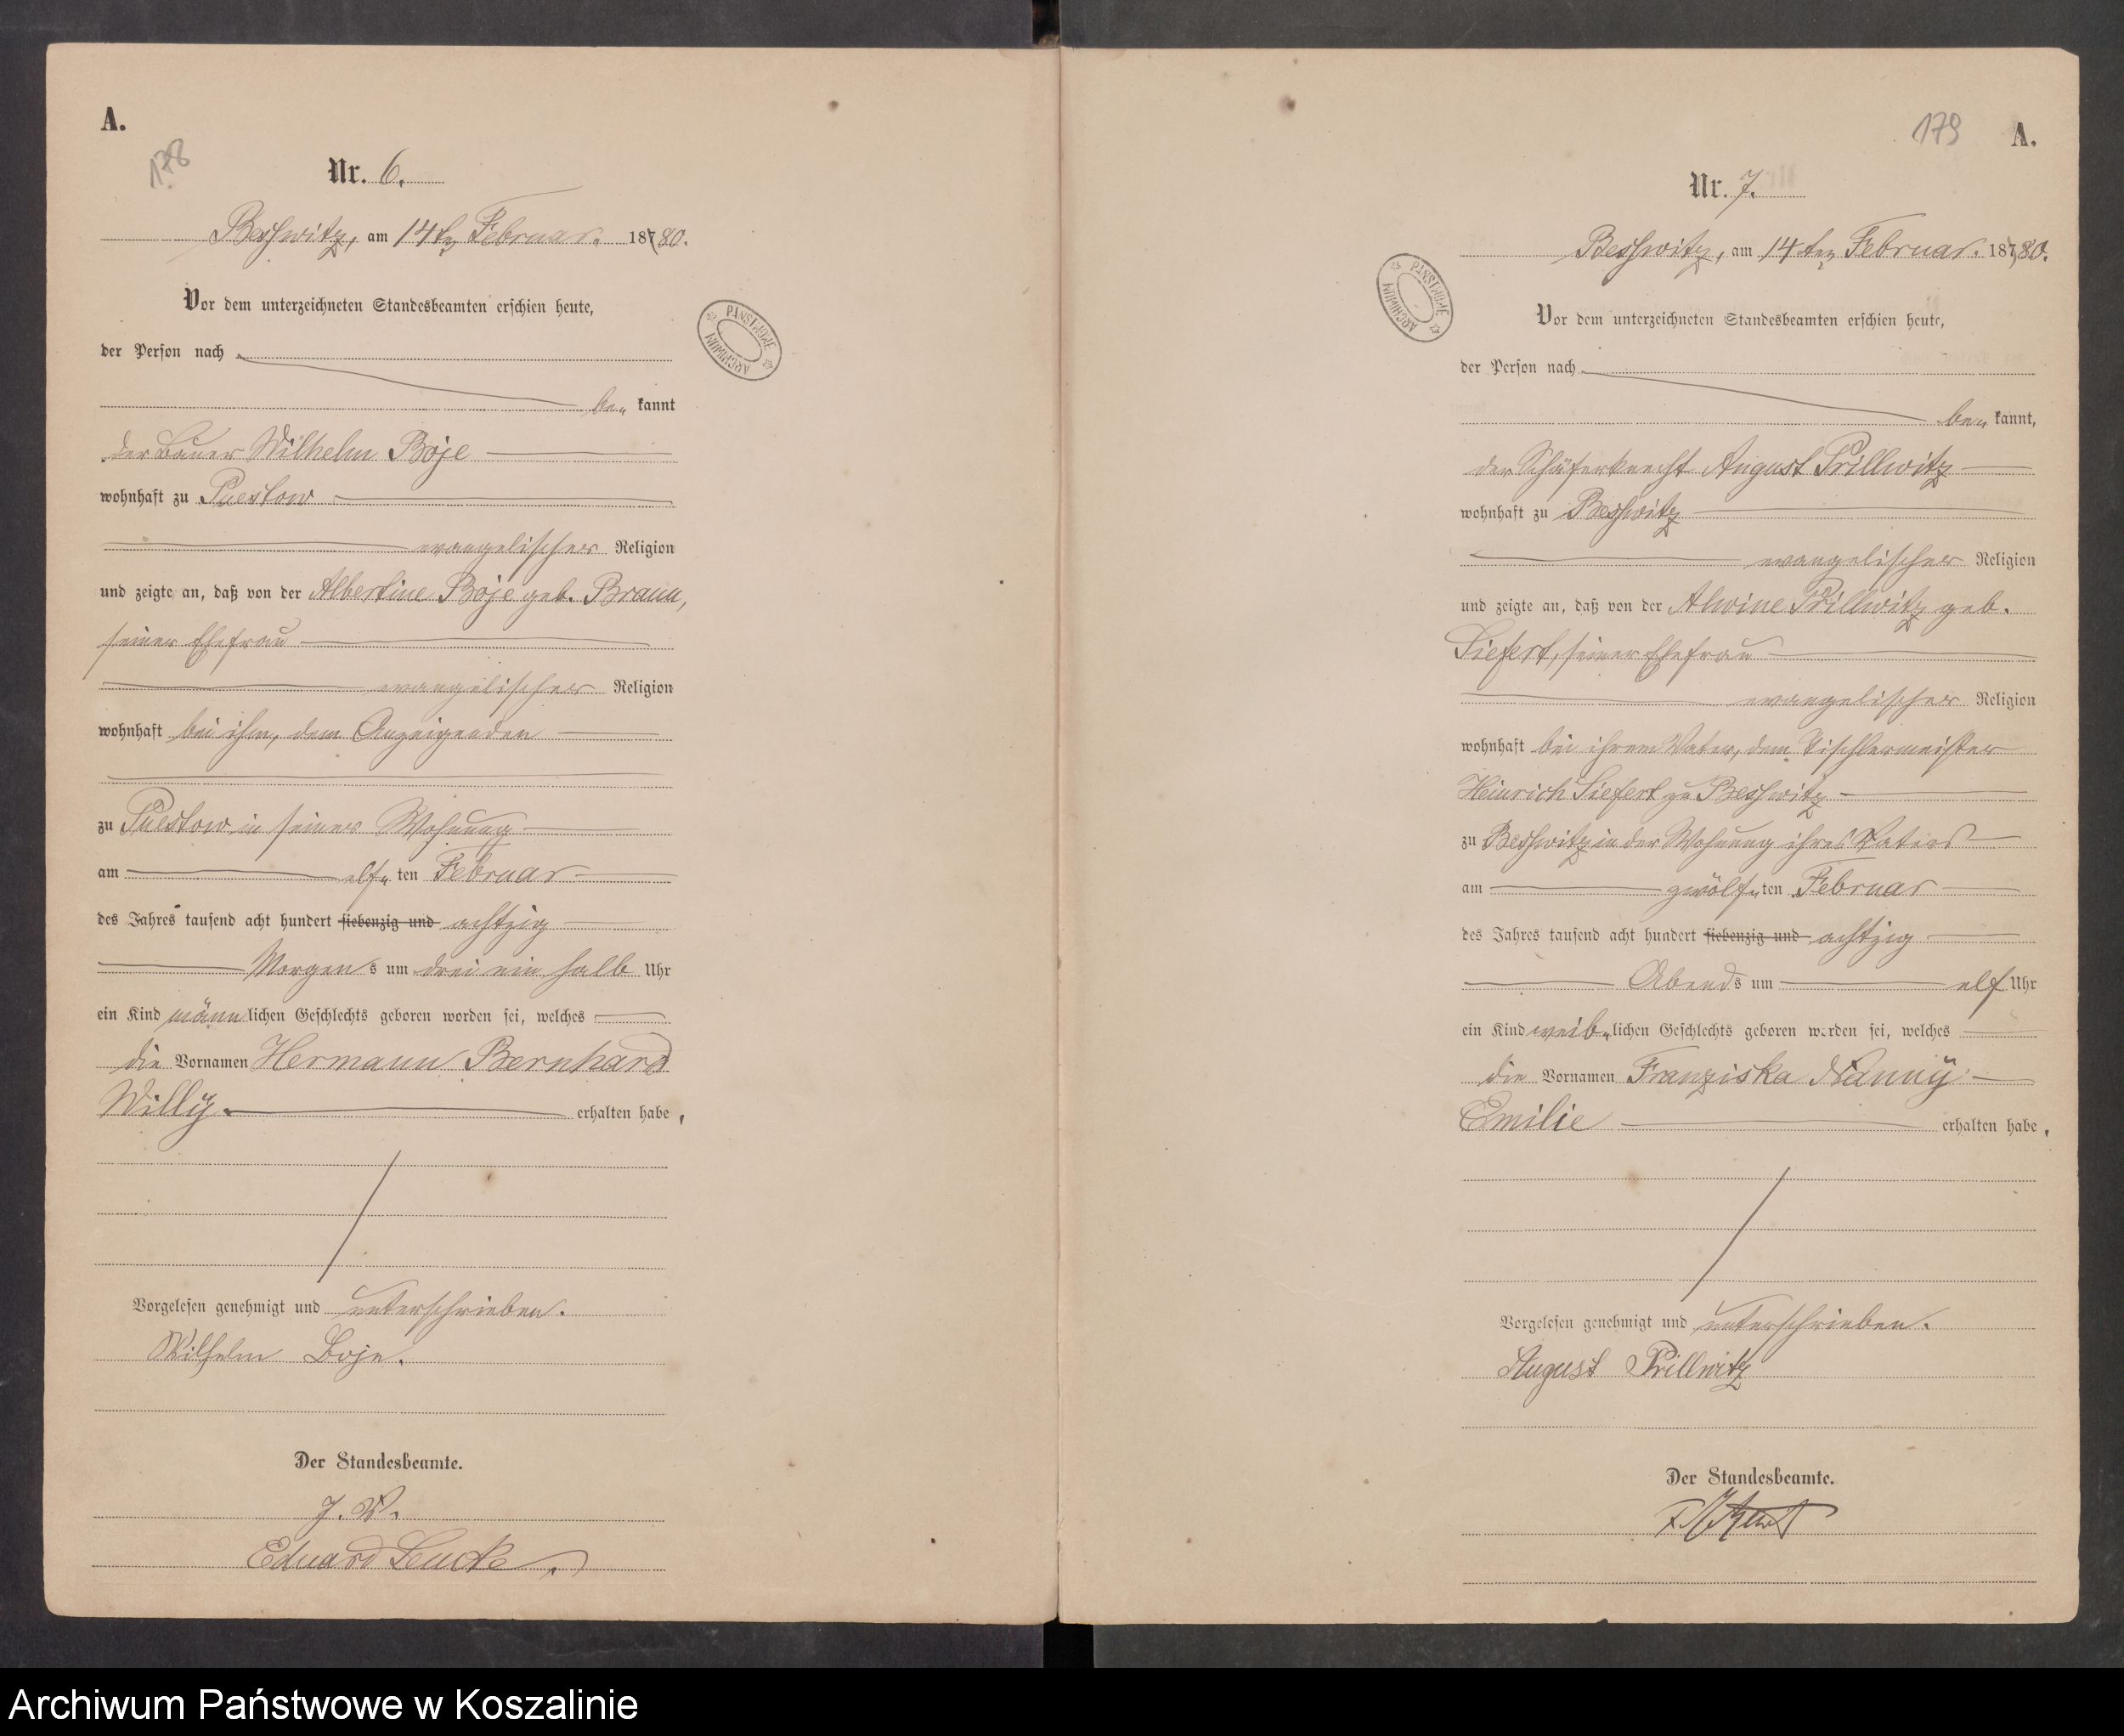 A.
178
Nr. 6.
Beßwitz, am 14ten Februar. 18780.
Vor dem unterzeichneten Standesbeamten erschien heute,
der Person nach
be„ kannt
der Bauer Wilhelm Boje
wohnhaft zu Puestow
evangelischer Religion
und zeigte an, daß von der Albertine Boje geb. Braun,
seiner Ehefrau
evangelischer Religion
wohnhaft bei ihm, dem Anzeigenden
zu Puestow in seiner Wohnung
am elf„ten Februar
des Jahres tausend acht hundert siebenzig und achtzig
Morgens um drei ein halb Uhr
ein Kind männlichen Geschlechts geboren worden sei, welches
die Vornamen Hermann Bernhard
Willy. erhalten habe.
Vorgelesen genehmigt und unterschrieben.
Wilhelm Boje.
Der Standesbeamte.
J. V.
Eduard
PAŃSTWOWE ARCHIWUM
179
A.
Nr. 7.
Beßwitz, am 14ten Februar. 18780.
Vor dem unterzeichneten Standesbeamten erschien heute,
der Person nach
be„ kannt,
der Schäferknecht August Prillwitz
wohnhaft zu Beßwitz
evangelischer Religion
und zeigte an, daß von der Alwine Prillwitz geb.
Siefert, seiner Ehefrau
evangelischer Religion
wohnhaft bei ihrem Vater, dem Tischlermeister
Heinrich Siefert zu Beßwitz
zu Beßwitz in der Wohnung ihres Vaters
am zwölf„ten Februar
des Jahres tausend acht hundert siebenzig und achtzig
Abends um elf Uhr
ein Kind weib„lichen Geschlechts geboren worden sei, welches
die Vornamen Franziska Nanny
Emilie erhalten habe.
Vorgelesen genehmigt und unterschrieben.
August Prillwitz
Der Standesbeamte.
PAŃSTWOWE ARCHIWUM
Archiwum Państwowe w Koszalinie